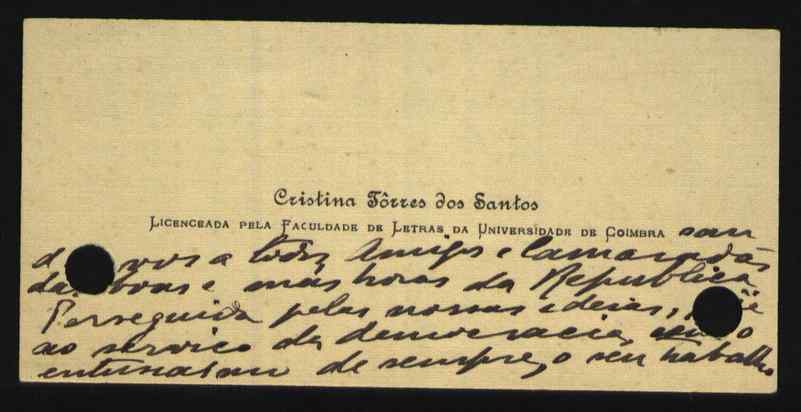 Cristina Tôrres dos Santos
LICENCEADA PELA FACULDADE DE LETRAS DA UNIVERSIDADE DE COIMBRA sau
d vos a todos Amigos e Camaradas
das boas e más horas da Republica
Perseguida pelas nossas ideias,
ao serviço da democracia, o
de sempre, o seu trabalho